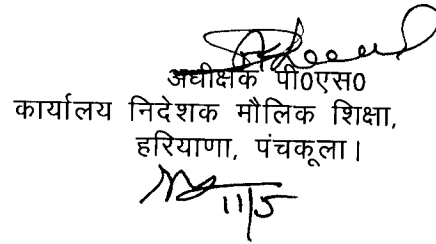 अधीक्षक पी0एस0
कार्यालय निदेशक मौलिक शिक्षा,
हरियाणा, पंचकूला।
11/5